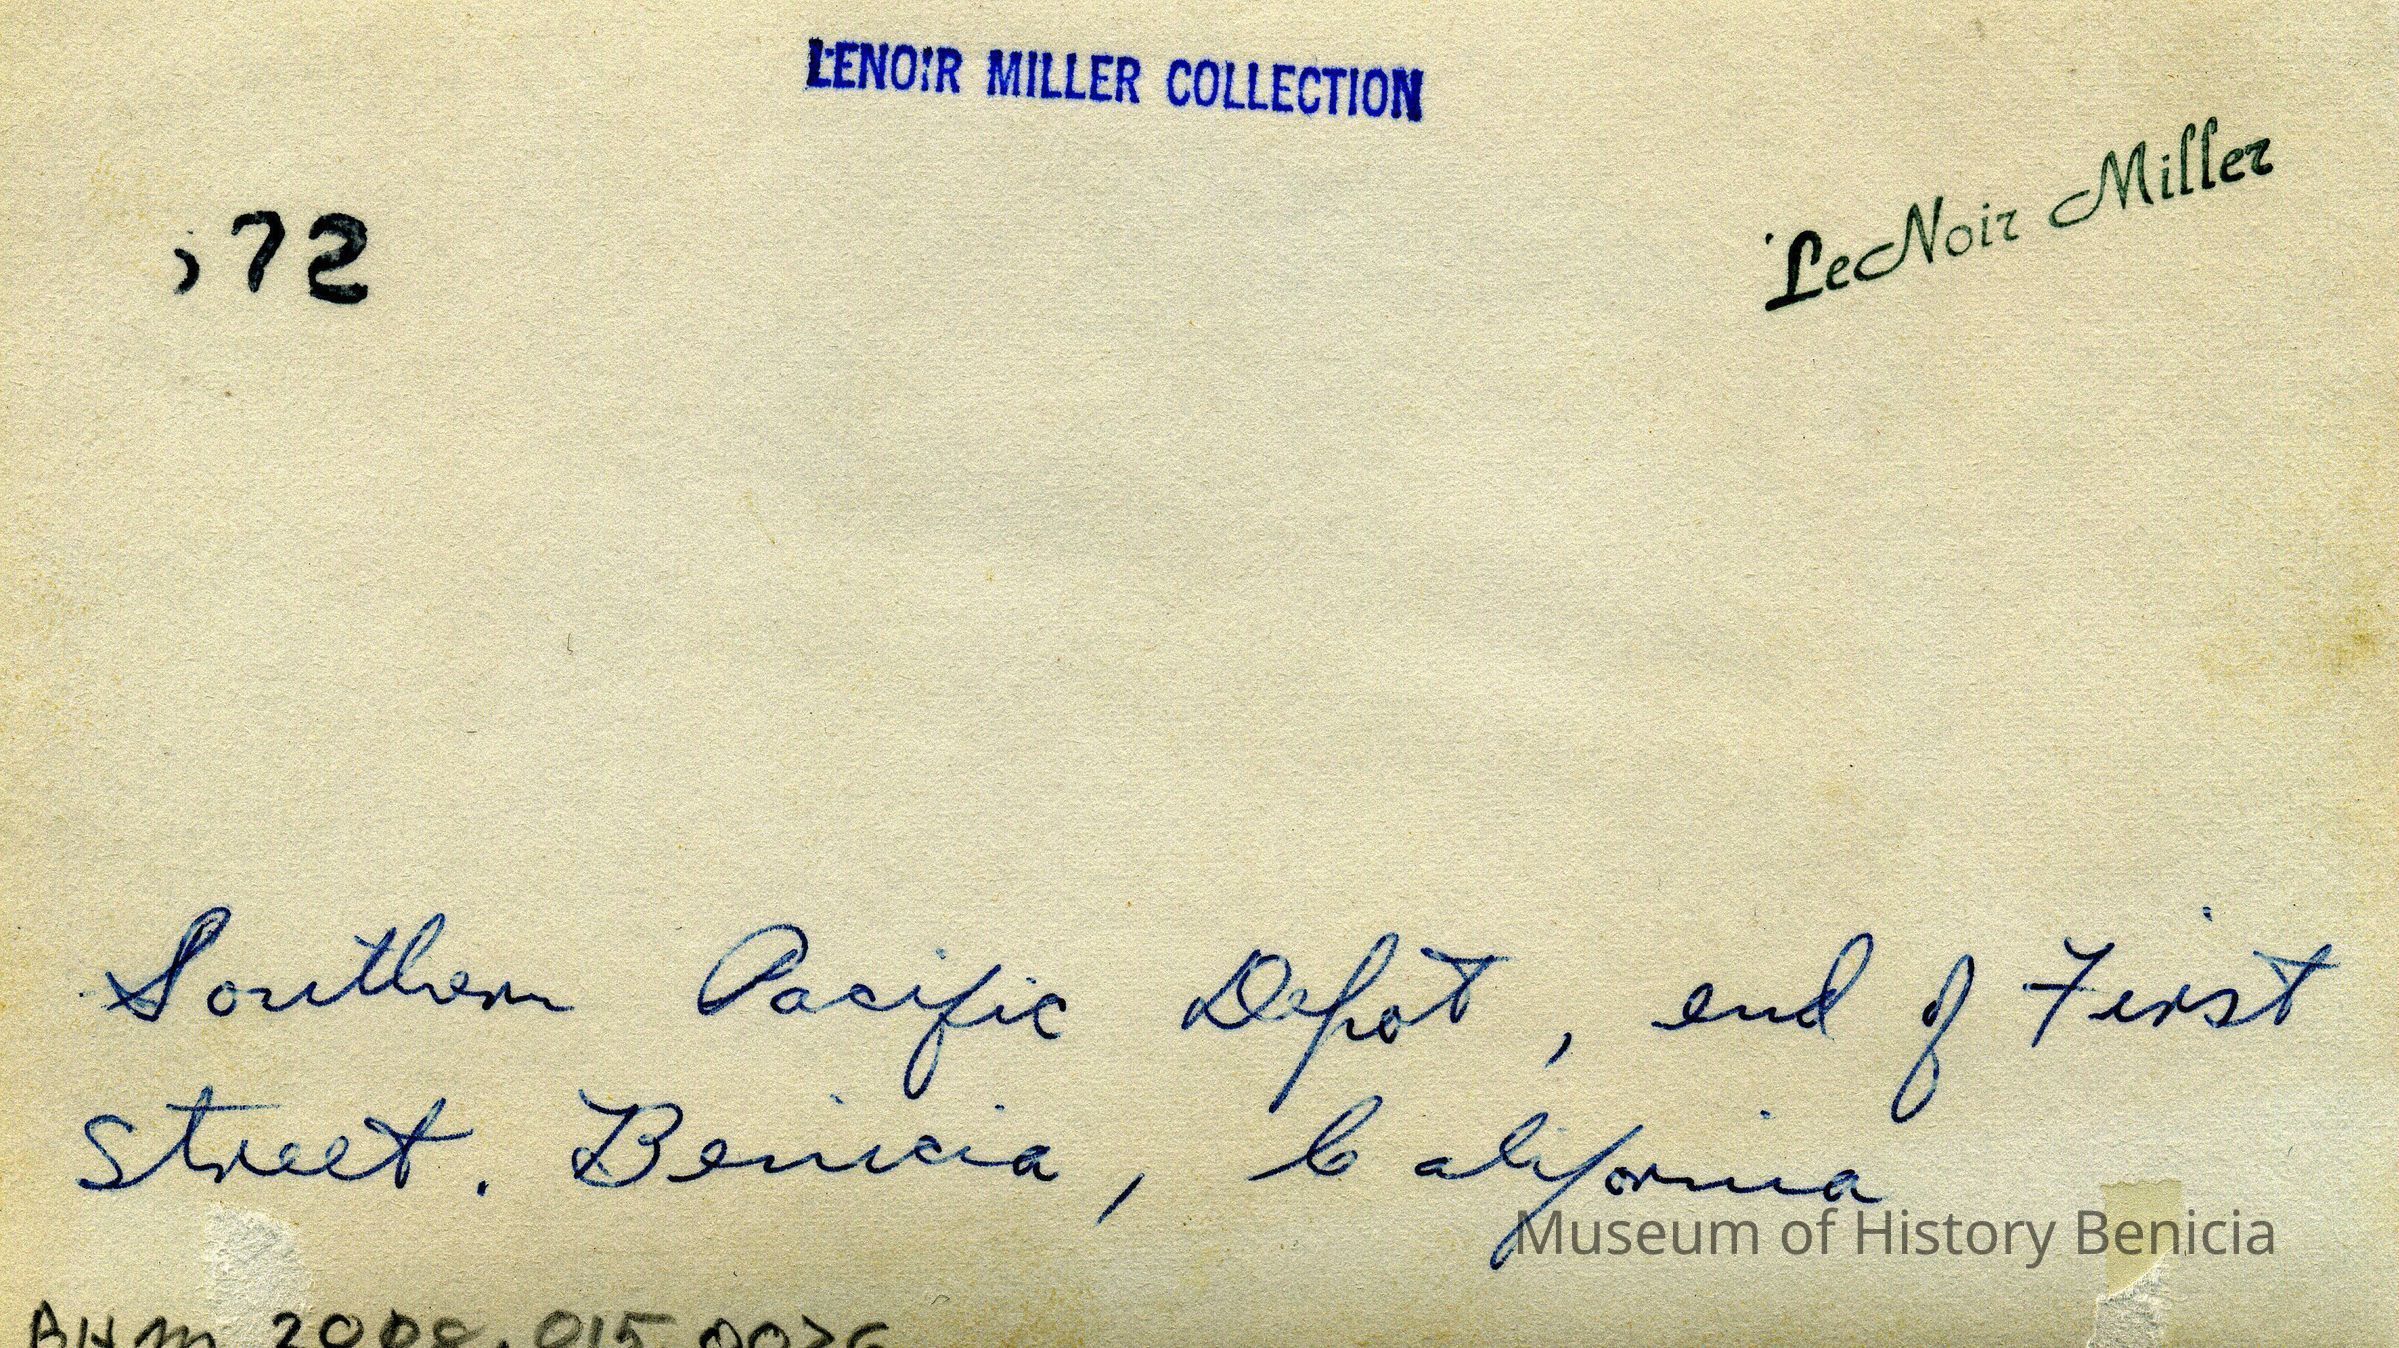 LENOIR MILLER COLLECTION
LeNoir Miller
72
Southern Pacific Depot, end of First
Street. Benicia, California
Museum of History Benicia
BHM